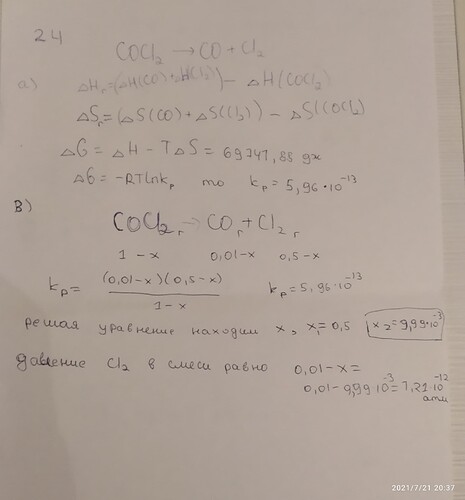 24
COCl₂ → CO + Cl₂
а) ΔHᵣ=(ΔH(CO)+ΔH(Cl₂)) - ΔH(COCl₂)
ΔSᵣ=(ΔS(CO)+ΔS(Cl₂)) - ΔS(COCl₂)
ΔG = ΔH - TΔS = 69747,88 дж
ΔG = -RTlnkₚ то kₚ = 5,96·10⁻¹³
В)
COCl₂ г → CO г + Cl₂ г
1-x 0,01-x 0,5-x
kₚ = (0,01-x)(0,5-x) / 1-x kₚ = 5,96·10⁻¹³
решая уравнение находим x, x₁=0,5 x₂=9,99·10⁻³
давление Cl₂ в смеси равно 0,01-x =
0,01-9,99·10⁻³=1,21·10⁻¹²
атм
2021/7/21 20:37